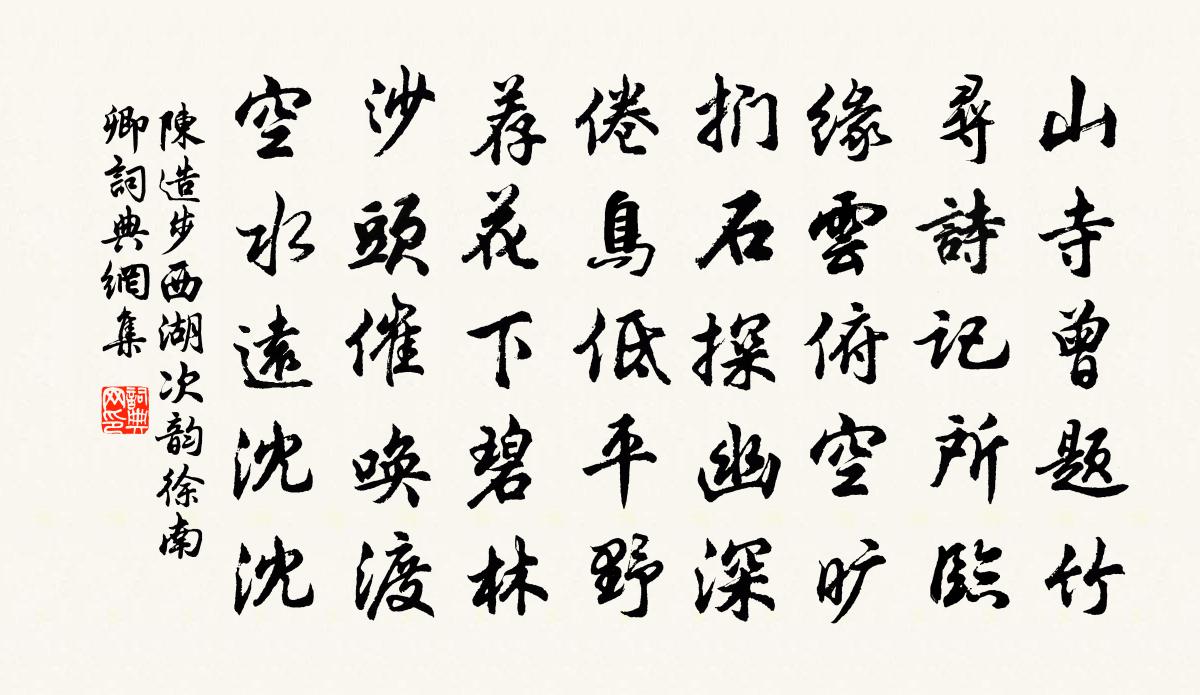 山寺曾題竹
尋詩記所臨
緣雲俯空旷
捫石探幽深
倦鳥低平野
荐花下碧林
沙頭催喚渡
空水遠沈沈
陳造步西湖次韵徐南
卿詞典網集
詞典
网印